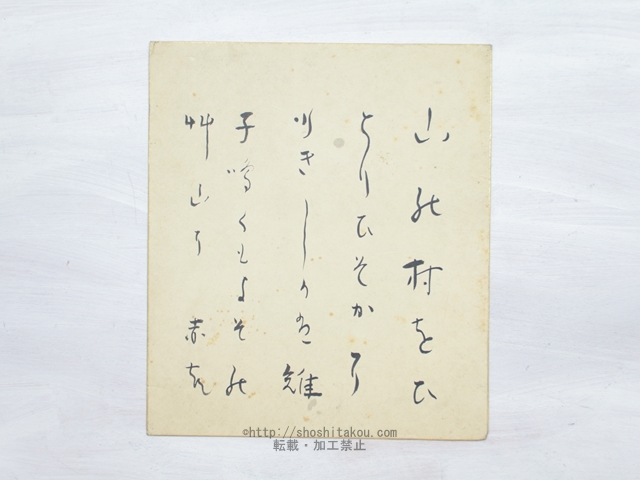 山の村をひ
とりひそかに
きしかば雉
子鳴くもよその
艸山に 赤
©http://shoshitakou.com
転載・加工禁止